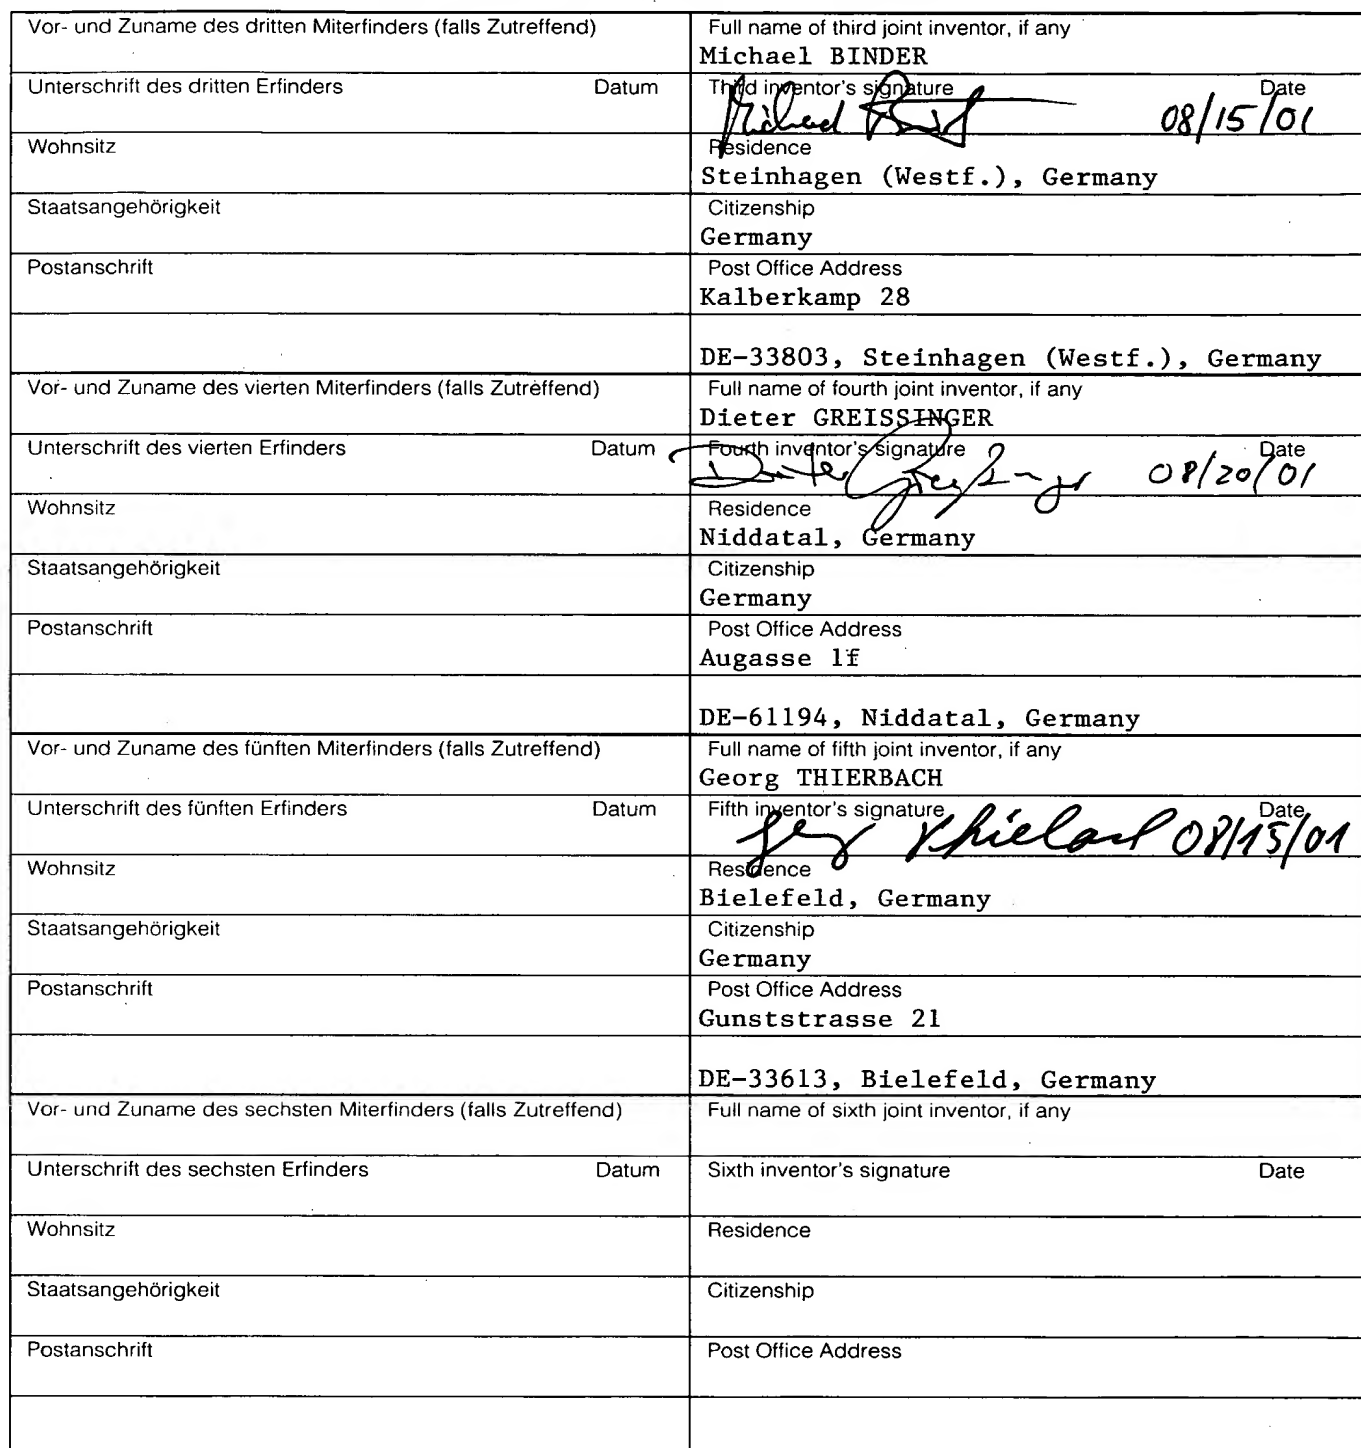 Vor- und Zuname des dritten Miterfinders (falls Zutreffend)
Full name of third joint inventor, if any
Michael BINDER
Unterschrift des dritten Erfinders Datum
Third inventor's signature Date
Michael 08/15/01
Wohnsitz
Residence
Steinhagen (Westf.), Germany
Staatsangehörigkeit
Citizenship
Germany
Postanschrift
Post Office Address
Kalberkamp 28
DE-33803, Steinhagen (Westf.), Germany
Vor- und Zuname des vierten Miterfinders (falls Zutreffend)
Full name of fourth joint inventor, if any
Dieter GREISSINGER
Unterschrift des vierten Erfinders Datum
Fourth inventor's signature Date
Dieter Greißinger 08/20/01
Wohnsitz
Residence
Niddatal, Germany
Staatsangehörigkeit
Citizenship
Germany
Postanschrift
Post Office Address
Augasse 1f
DE-61194, Niddatal, Germany
Vor- und Zuname des fünften Miterfinders (falls Zutreffend)
Full name of fifth joint inventor, if any
Georg THIERBACH
Unterschrift des fünften Erfinders Datum
Fifth inventor's signature Date
Georg Thierbach 08/15/01
Wohnsitz
Residence
Bielefeld, Germany
Staatsangehörigkeit
Citizenship
Germany
Postanschrift
Post Office Address
Gunststrasse 21
DE-33613, Bielefeld, Germany
Vor- und Zuname des sechsten Miterfinders (falls Zutreffend)
Full name of sixth joint inventor, if any
Unterschrift des sechsten Erfinders Datum
Sixth inventor's signature Date
Wohnsitz
Residence
Staatsangehörigkeit
Citizenship
Postanschrift
Post Office Address